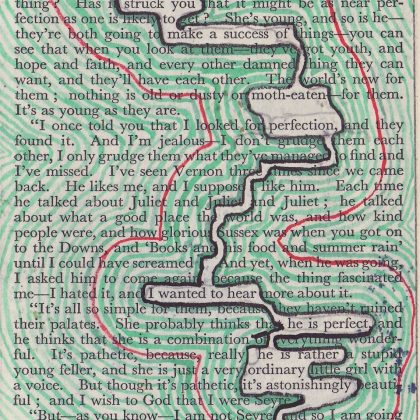 thing Has struck you that it might be near per-
fection as one is likely get ? She's young, and so is he—
they're both going make a success of things—you can
see that when you look at them—they've got youth, and
hope and faith, and every other damned thing they can
want, and they'll have each other. The world's new for
them ; nothing is old or dusty moth-eaten—for them.
It's as young as they are.
"I once told you that I looked for perfection, and they
found it. And I'm jealous I don't grudge them each
other, I only grudge them what they managed to find and
I've missed. I've seen Vernon three times since we came
back. He likes me, and I suppose I like him. Each time
he talked about Juliet and Juliet ; he talked
about what a good place the world was, and how kind
people were, and how glorious Sussex was when you got on
to the Downs, and 'Books and his food and summer rain'
until I could have screamed And yet, when he was going,
I asked him to come again because the thing fascinated
me—I hated it, and I wanted to hear more about it.
"It's all so simple for them, because they haven't ruined
their palates. She probably thinks that he is perfect, and
he thinks that she is a combination of everything wonder-
ful. It's pathetic, because, really he is rather a stupid
young feller, and she is just a very ordinary little girl with
a voice. But though it's pathetic, it's astonishingly beauti-
ful ; and I wish to God that I were Seyre
"But—as you know—I am not Seyre and so I am going